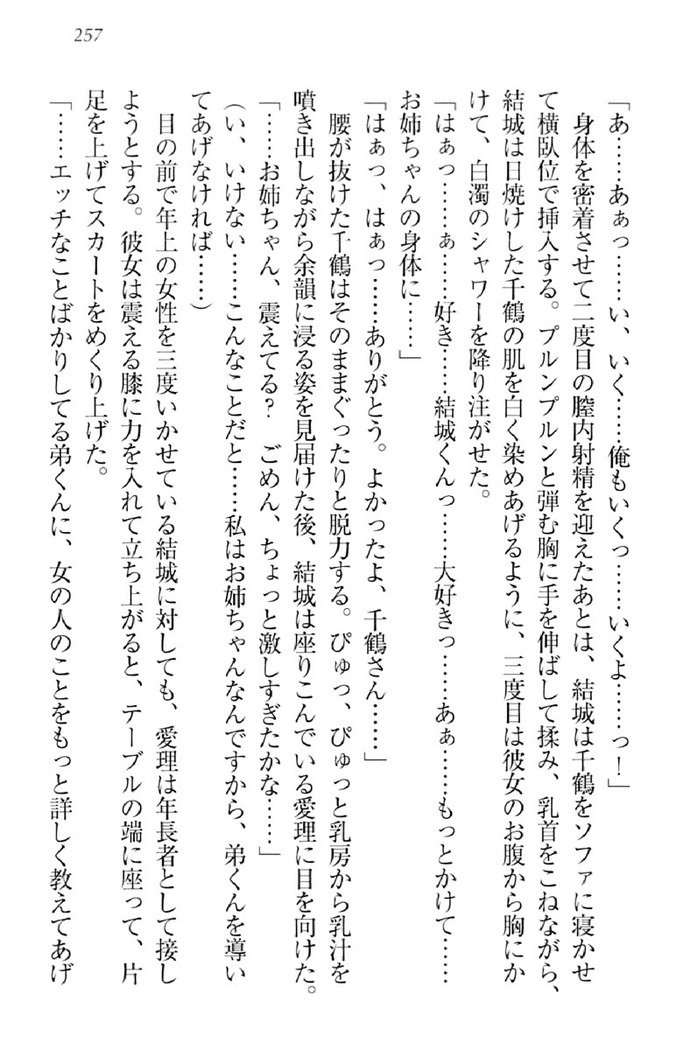 257
「あ……あぁっ……い、いく……俺もいくっ……いくよ……っ！」
身体を密着させて二度目の膣内射精を迎えたあとは、結城は千鶴をソファに寝かせ
て横臥位で挿入する。プルンプルンと弾む胸に手を伸ばして揉み、乳首をこねながら、
結城は日焼けした千鶴の肌を白く染めあげるように、三度目は彼女のお腹から胸にか
けて、白濁のシャワーを降り注がせた。
「はぁっ……ぁ……好き……結城くんっ……大好きっ……あぁ……もっとかけて……
お姉ちゃんの身体に……」
「はぁっ、はぁっ……ありがとう。よかったよ、千鶴さん……」
腰が抜けた千鶴はそのままぐったりと脱力する。ぴゅっ、ぴゅっと乳房から乳汁を
噴き出しながら余韻に浸る姿を見届けた後、結城は座りこんでいる愛理に目を向けた。
「……お姉ちゃん、震えてる？　ごめん、ちょっと激しすぎたかな……」
（い、いけない……こんなことだと……私はお姉ちゃんなんですから、弟くんを導い
てあげなければ……）
目の前で年上の女性を三度いかせている結城に対しても、愛理は年長者として接し
ようとする。彼女は震える膝に力を入れて立ち上がると、テーブルの端に座って、片
足を上げてスカートをめくり上げた。
「……エッチなことばかりしてる弟くんに、女の人のことをもっと詳しく教えてあげ